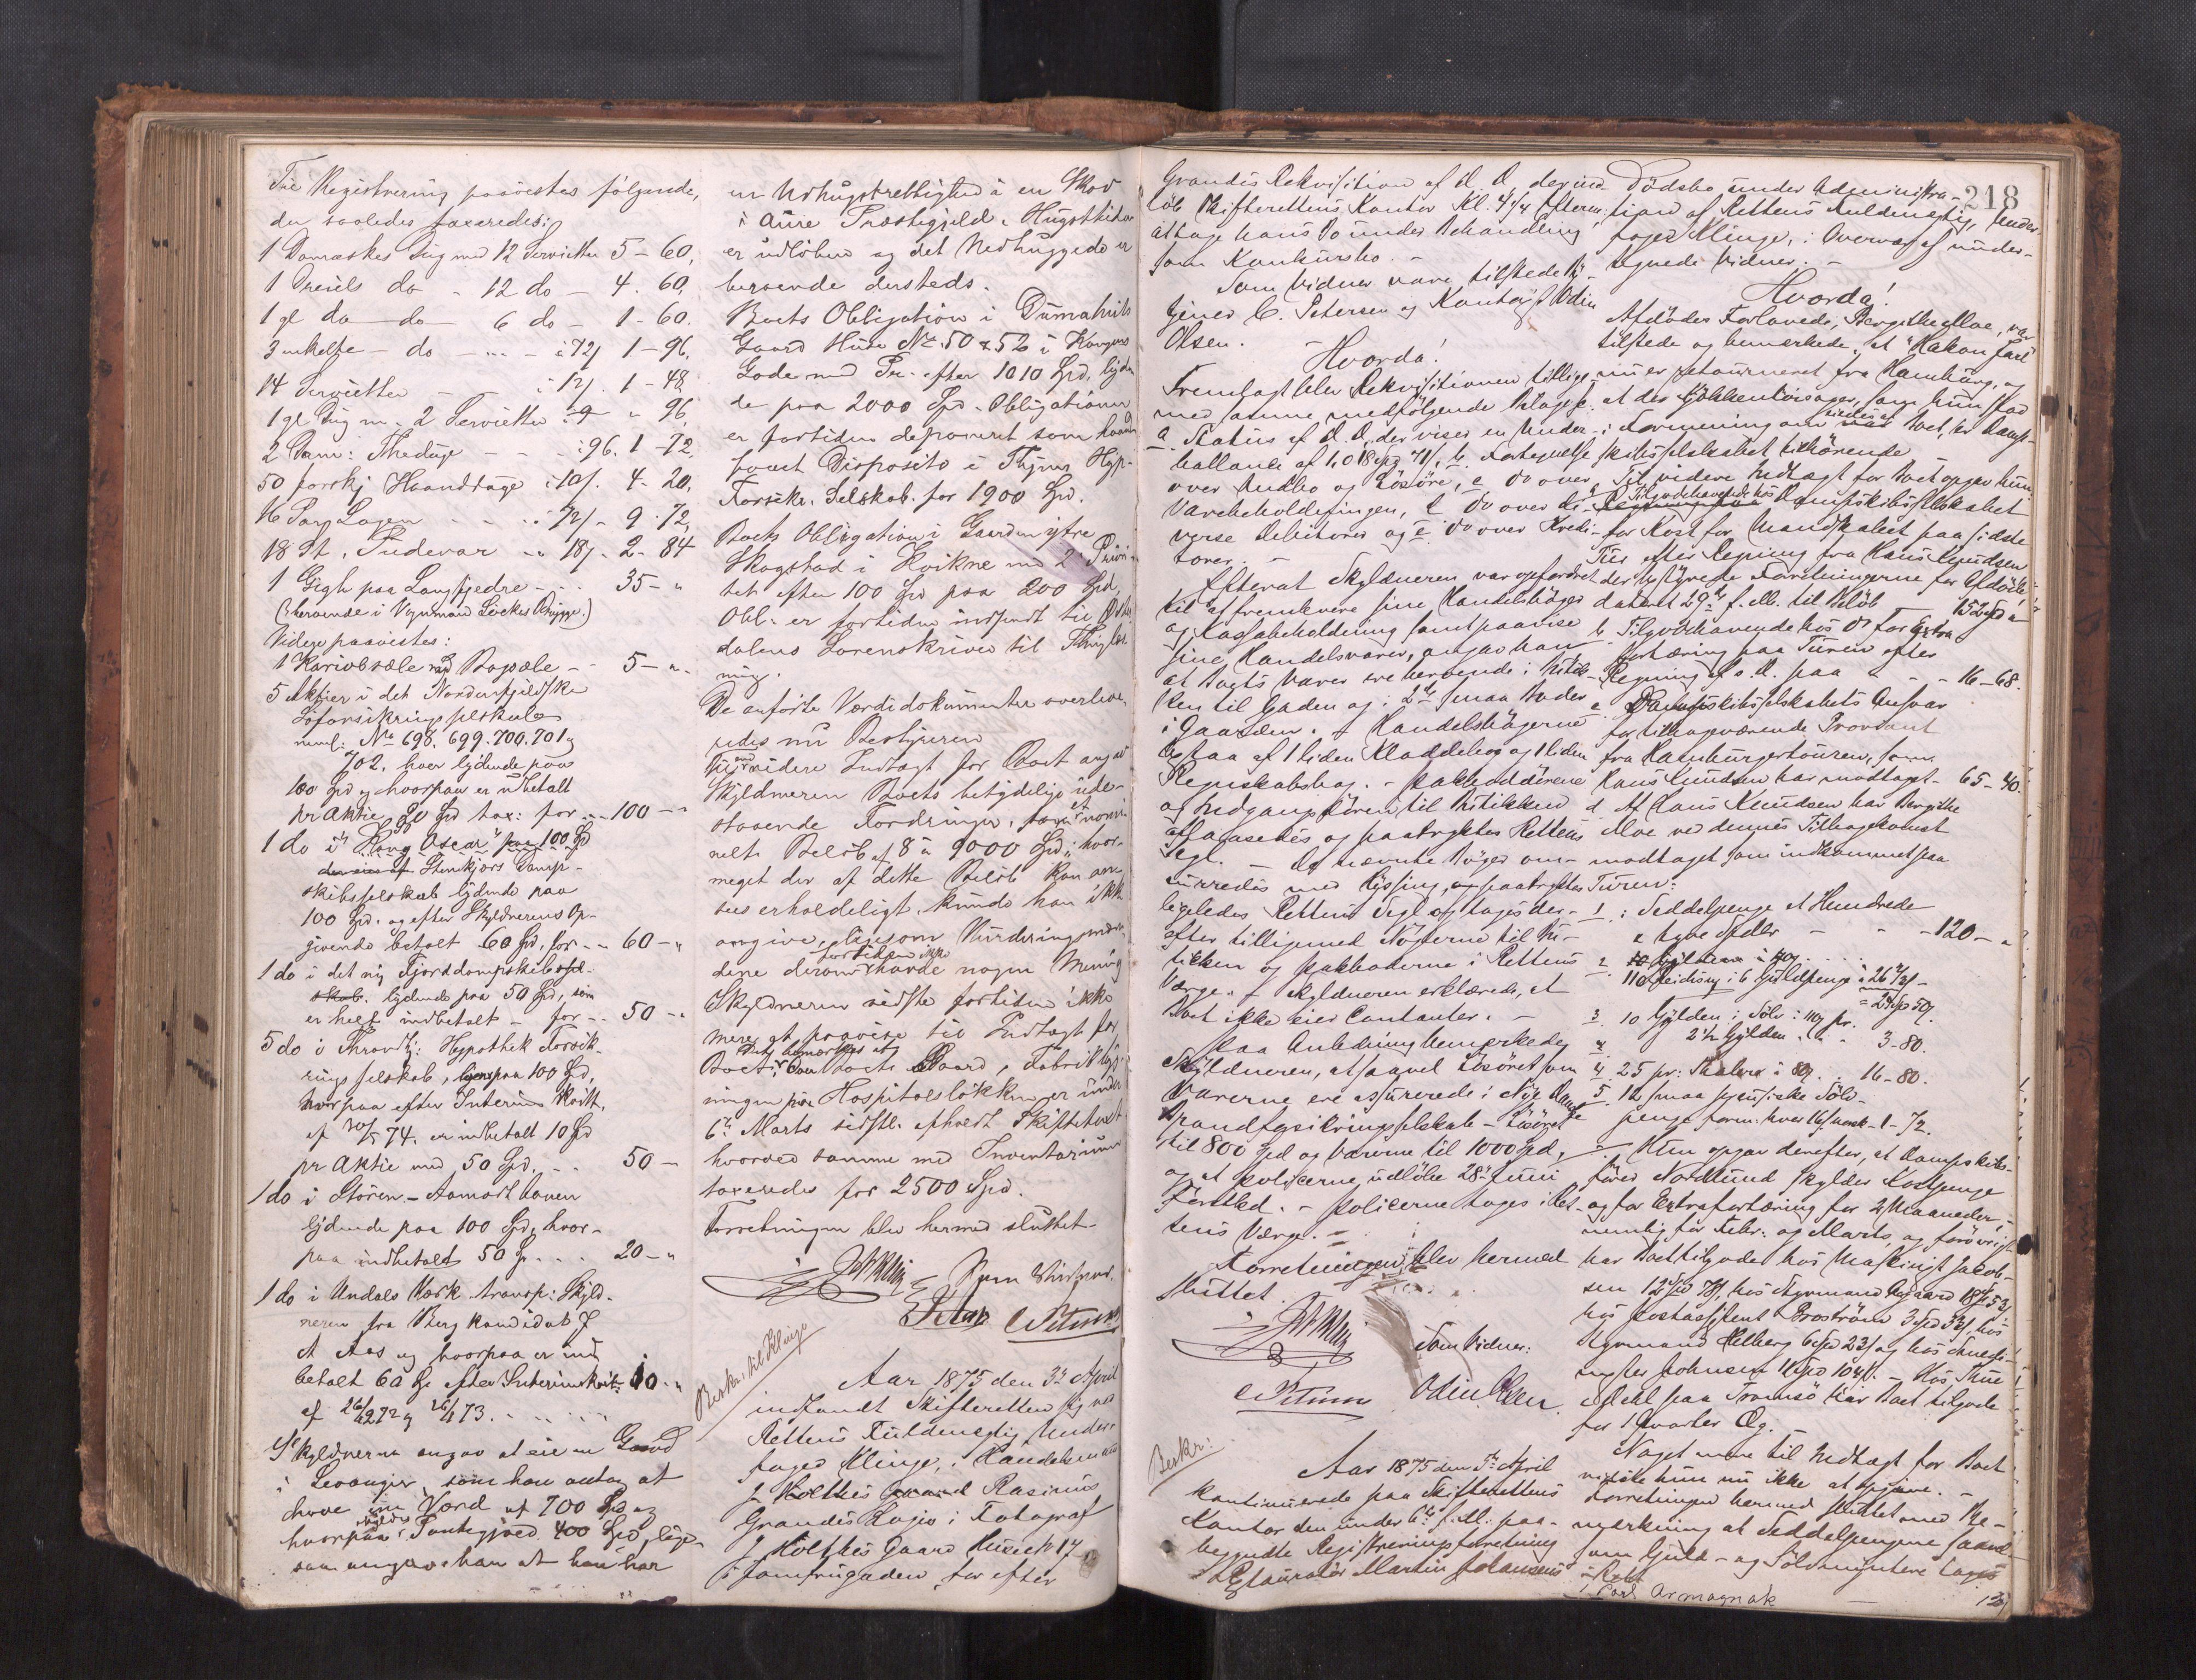 Til Registrering paavistes følgende,
der saaledes taxeredes:
1 Damaskes Dug med 12 Servietter 5 - 60.
1 Dreiels do - 12 do - 4. 60.
1 gl do - do - 6 do - 1 - 60.
3 enkelte do - - - à 72/ 1 - 96.
14 Servietter - - à 12/. 1 - 48.
1 gl Dug m. 2 Servietter - " 96.
2 Dam: Theduge - - à 96. 1 - 72.
50 forskj Haandduge à 10/. 4 - 20.
16 Par Lagen - - à 72/ - 9. 72.
18 St. Pudevar - à 18/. - 2 - 84
1 Gigh paa Langfjedre - - 35 - "
(beroende i Vognmand Løckes Brygge.)
Videre paavistes:
1 Kariolsæle med Bogsæle - - 5 - "
5 Aktier i det Nordenfjeldske
Søforsikringsselskab
neml: No 698. 699. 700. 701 og
702. hver lydende paa
100 Spd og hvorpaa er indbetalt
pr Aktie 20 Spd tax: for - 100 - "
1 do i "Kong Oscar" paa 100 Spd
Stenkjærs Damp-
skibsselskab lydende paa
100 Spd. og efter Skyldnerens Op-
givende betalt 60 Spd, for - - 60 - "
1 do i det ny Fjorddampskibssel-
skab. lydende paa 50 Spd, som
er helt indbetalt - for - - 50 - "
5 do i Throndhj: Hypothek Forsik-
rings selskab, paa 100 Spd,
hvorpaa efter Interims Kvitt.
af 30/5 74. er indbetalt 10 Spd
pr Aktie med 50 Spd. - - 50 -
1 do i Støren - Aamodt banen
lydende paa 100 Spd, hvor-
paa indbetalt 50 Sp. - - 20 - "
1 do i Undals Værk transp: Skyld-
neren fra Berg kandidat J
A Aas og hvorpaa er ind
betalt 60 Sp efter Interimskvit: 10 - "
af 26/9 72 og 26/4 73. - - -
Skyldneren angav at eie en Gaard
i Levanger, som han antog at
have en Værd af 700 Spd og
hvorpaa hæfter Pantegjæld 400 Spd, lige-
saa angav han at han har
en Udhugstrettighed i en Skov
i Aure Præstegjeld. Hugsttiden
er udløben og det Nedhuggede er
beroende dersteds.
Boets Obligation i Dumahuits
Gaard Huse No 50 & 52 i Kongens
Gade med Pr. efter 1010 Spd, lyden
de paa 2000 Spd - Obligationen
er fortiden deponeret som haand
faaet Disposito i Thjems Hyp-
Forsikr. Selskab for 1900 Spd.
Boets Obligation i Gaarden ytre
Skogstad i Kvikne med 2d Priori-
tet efter 100 Spd paa 200 Spd,
Obl. er fortiden indsendt til Øster
dalens Sorenskriver til Thinglæs-
ning.
De anførte Værdidokumenter overleve-
redes nu Bestyreren
Til end videre Indtægt for Boet angav
Skyldneren Boets betydelige ude-
staaende Fordringer, til et nomi
nelt Beløb af 8 à 9000 Spd; hvor-
meget der af dette Beløb kan an-
sees erholdeligt, kunde han ikke
angive, ligesom Vurderingsmæn
dene derom fortiden ikke havde nogen Mening
Skyldneren vidste fortiden ikke
mere at paavise til Indtægt for
Boet. Det bemærkes at Boets Gaard, Fabrikbyg-
ningen paa Hospitalsløkken er under
6te Marts sidstl. afholdt Skiftetaxt
hvorved samme med Inventarium
taxeredes for 2500 Spd.
Forretningen blev hermed sluttet
Som Vurdmd.
C Petersen
Beskr: til Klinge
Aar 1875 den 3de April
indfandt Skifteretten sig ved
Rettens Fuldmægtig Under-
foged Klinge, i Handelsmand
Rasmus
Grandes Logis i Fotograf
J Holthes Gaard Huse No 17
i Jomfrugaden, for efter
218
Grandes Rekvisition af d. D. der ind-
løb Skifterettens Kontor Kl. 4 1/4 Efterm:
at tage hans Bo under Behandling
som Konkursbo. -
Som Vidner vare tilstede By-
tjener C. Petersen og Kontorist Odin
Olsen. -
Hvorda!
Fremlagt blev Rekvisitionen tillige-
med samme medfølgende Bilage:
a Status af d. D. der viser en Under-
ballance af 1,018 Spd 71/, b. Fortegnelse
over Indbo og Løsøre, c do over
Varebeholdningen, d do over di-
verse Debitorer og e do over Kredi-
torer. -
Efterat Skyldneren var opfordret
til at fremkomme sine Handelsbøger
og Kassabeholdning samt paavise
sine Handelsvarer, angav han
at Boets Varer ere beroende i Butik-
ken til Gaden og i 2de smaa Boder
i Gaarden. - Handelsbøgerne
bestaa af 1 liden Kladdebog og 1 liden
Regnskabsbog. - Pakboddørene
og Indgangsdøren til Butikken
aflaasedes og paatryktes Rettens
Segl. - De nævnte Bøger om-
surredes med Hyssing, og paatryktes
ligeledes Rettens Segl og toges der-
efter tilligemed Nøglerne til Bu-
tikken og Pakboderne i Rettens
Værge. - Skyldneren erklærede, at
Boet ikke eier Contanter. -
Paa Anledning bemærkede
Skyldneren, at saavel Løsøret som
Varerne ere assurerede i Nye Danske
Brandforsikringsselskab - Løsøret
til 800 Spd og Varerne til 1000 Spd,
og at Policerne udløbe 28de Juni
førstk. - Policerne toges i Ret-
tens Værge. -
Forretningen blev hermed
sluttet.
Som Vidner:
C Petersen Odin Olsen
Beskr:
Aar 1875 den 5te April
kontinuerede paa Skifterettens
Kontor den under 6te f. M. paa-
begyndte Registreringsforretning
i Restauratør Martin Johansens
Dødsbo under Administra-
tion af Rettens Fuldmægtig, Under-
foged Klinge, i Overvær af under-
tegnede Vidner. -
Hvorda!
Afdødes Forlovede, Bergithe Moe, var
tilstede og bemærkede, at "Hakon Jarl"
nu er retourneret fra Hamburg, og
at des Kjøkkentøisager, som hun stod
i Formening om eiedes af Boet, er Damp-
skibsselskabet tilhørende
Til videre Indtægt for Boet opgav hun:
a Tilgodehavende hos Dampskibsselskabet
for Kost for Mandskabet paa sidste
Tur efter Regning fra Hans Knudsen
der bestyrede Forretningerne for Afdøde
dateret 29de f. M. til Beløb - 152 Spd "
b. Tilgodehavende hos do for Extra
fortæring paa Turen efter
Regning af s. D. paa - - - 16 - 68.
c Dampskibsselskabets Ansvar
for tilbageværende Proviant
fra Hamburgertouren, som
Hans Knudsen har modtaget - 65 - 40.
d Af Hans Knudsen har Bergithe
Moe ved dennes Tilbagekomst
modtaget som indkommet paa
Turen:
1: Seddelpenge et Hundrede
& tyve Spdlr - - - 120 - "
2
110 Reichsm: i 6 Guldpenge à 26 2/3/ -
= 24 Spd 50/.
3. 10 Gylden i Sølv à 110/ pr.
2 1/2 Gylden - - 3 - 80.
4. 25 pr: Thalere à 80/. . 16 - 80.
5. 12 smaa preusiske Sølv-
penge form: hver 16/ norsk - 1 - 72.
- Hun opgav derefter, at Dampskibs-
fører Nordlund skylder Kostpenge
og for Extrafortæring for 2 Maaneder,
nemlig for Febr. og Marts, og forøvrigt
har Boet tilgode hos Maskinist Jakob-
sen 12 Spd 78/, hos Styrmand Aagaard 18 Sp 53/
hos Postassistent Broström 3 Spd 32/ hos
Styrmand Hellberg 6 Spd 23/ og hos Smedi-
mester Johnsen 16 Spd 104/. - Hos Thue
Edahl paa Tromsø har Boet tilgode
for 1 Quarter Øg. -
Noget mere til Indtægt for Boet
vidste hun nu ikke at opgive. -
Forretningen hermed sluttet med Be-
mærkning at Seddelpengene saavel
som Guld- og Sølvmyntene toges
i Rett
1 Pard Armagnak - 12/